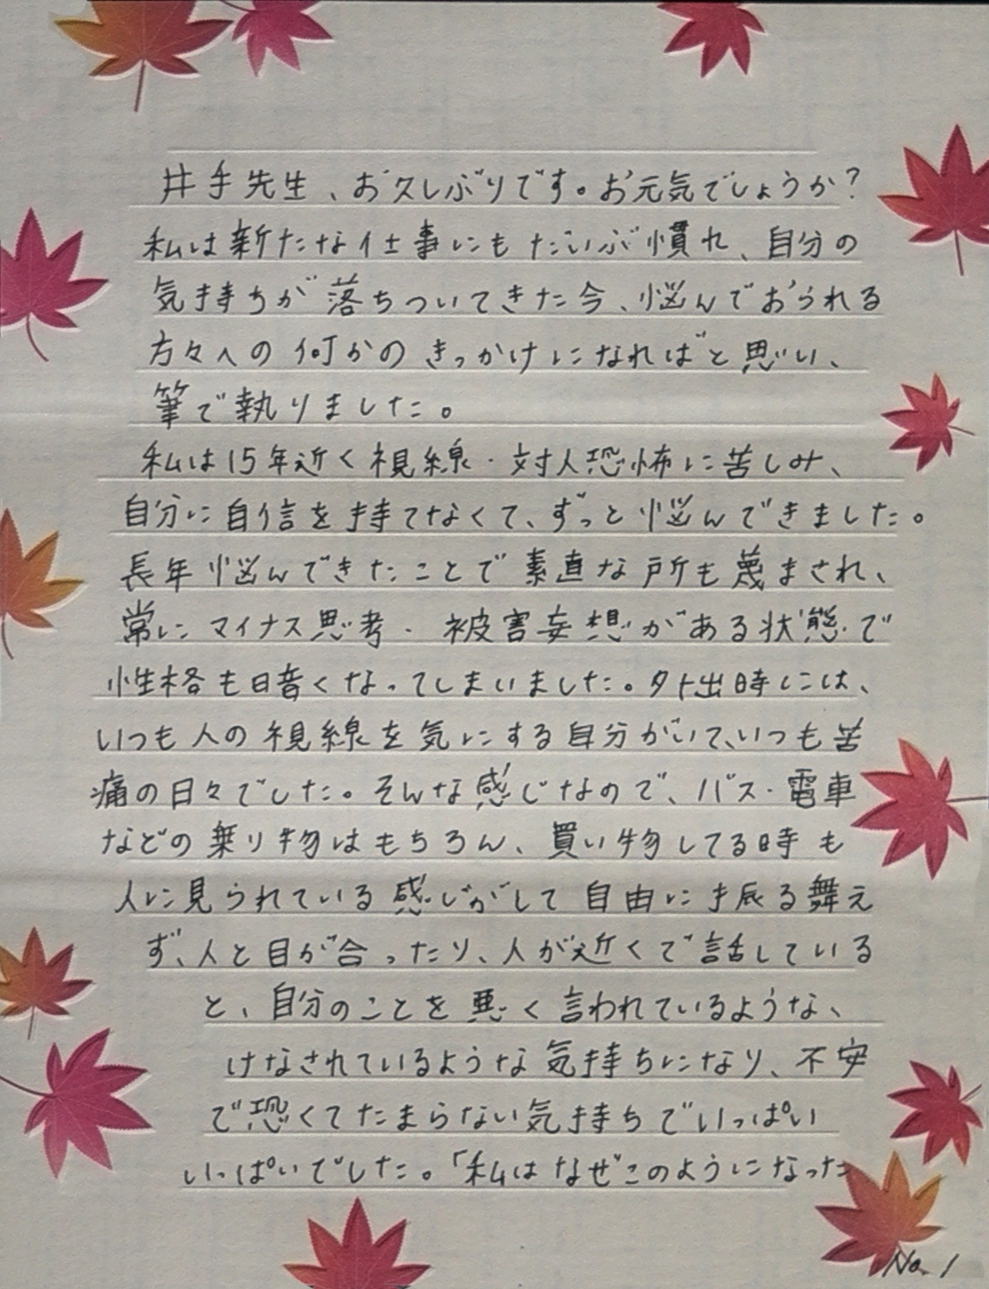 井手先生、お久しぶりです。お元気でしょうか?
私は新たな仕事にもだいぶ慣れ、自分の
気持ちが落ちついてきた今、悩んでおられる
方々への何かのきっかけになればと思い、
筆で執りました。
私は15年近く視線・対人恐怖に苦しみ、
自分に自信を持てなくて、ずっと悩んできました。
長年悩んできたことで素直な所も蔑まされ、
常にマイナス思考・被害妄想がある状態で
性格も暗くなってしまいました。外出時には、
いつも人の視線を気にする自分がいて、いつも苦
痛の日々でした。そんな感じなので、バス・電車
などの乗り物はもちろん、買い物してる時も
人に見られている感じがして自由に振る舞え
ず、人と目が合ったり、人が近くで話している
と、自分のことを悪く言われているような、
けなされているような気持ちになり、不安
で恐くてたまらない気持ちでいっぱい
いっぱいでした。「私はなぜこのようになった
No. 1